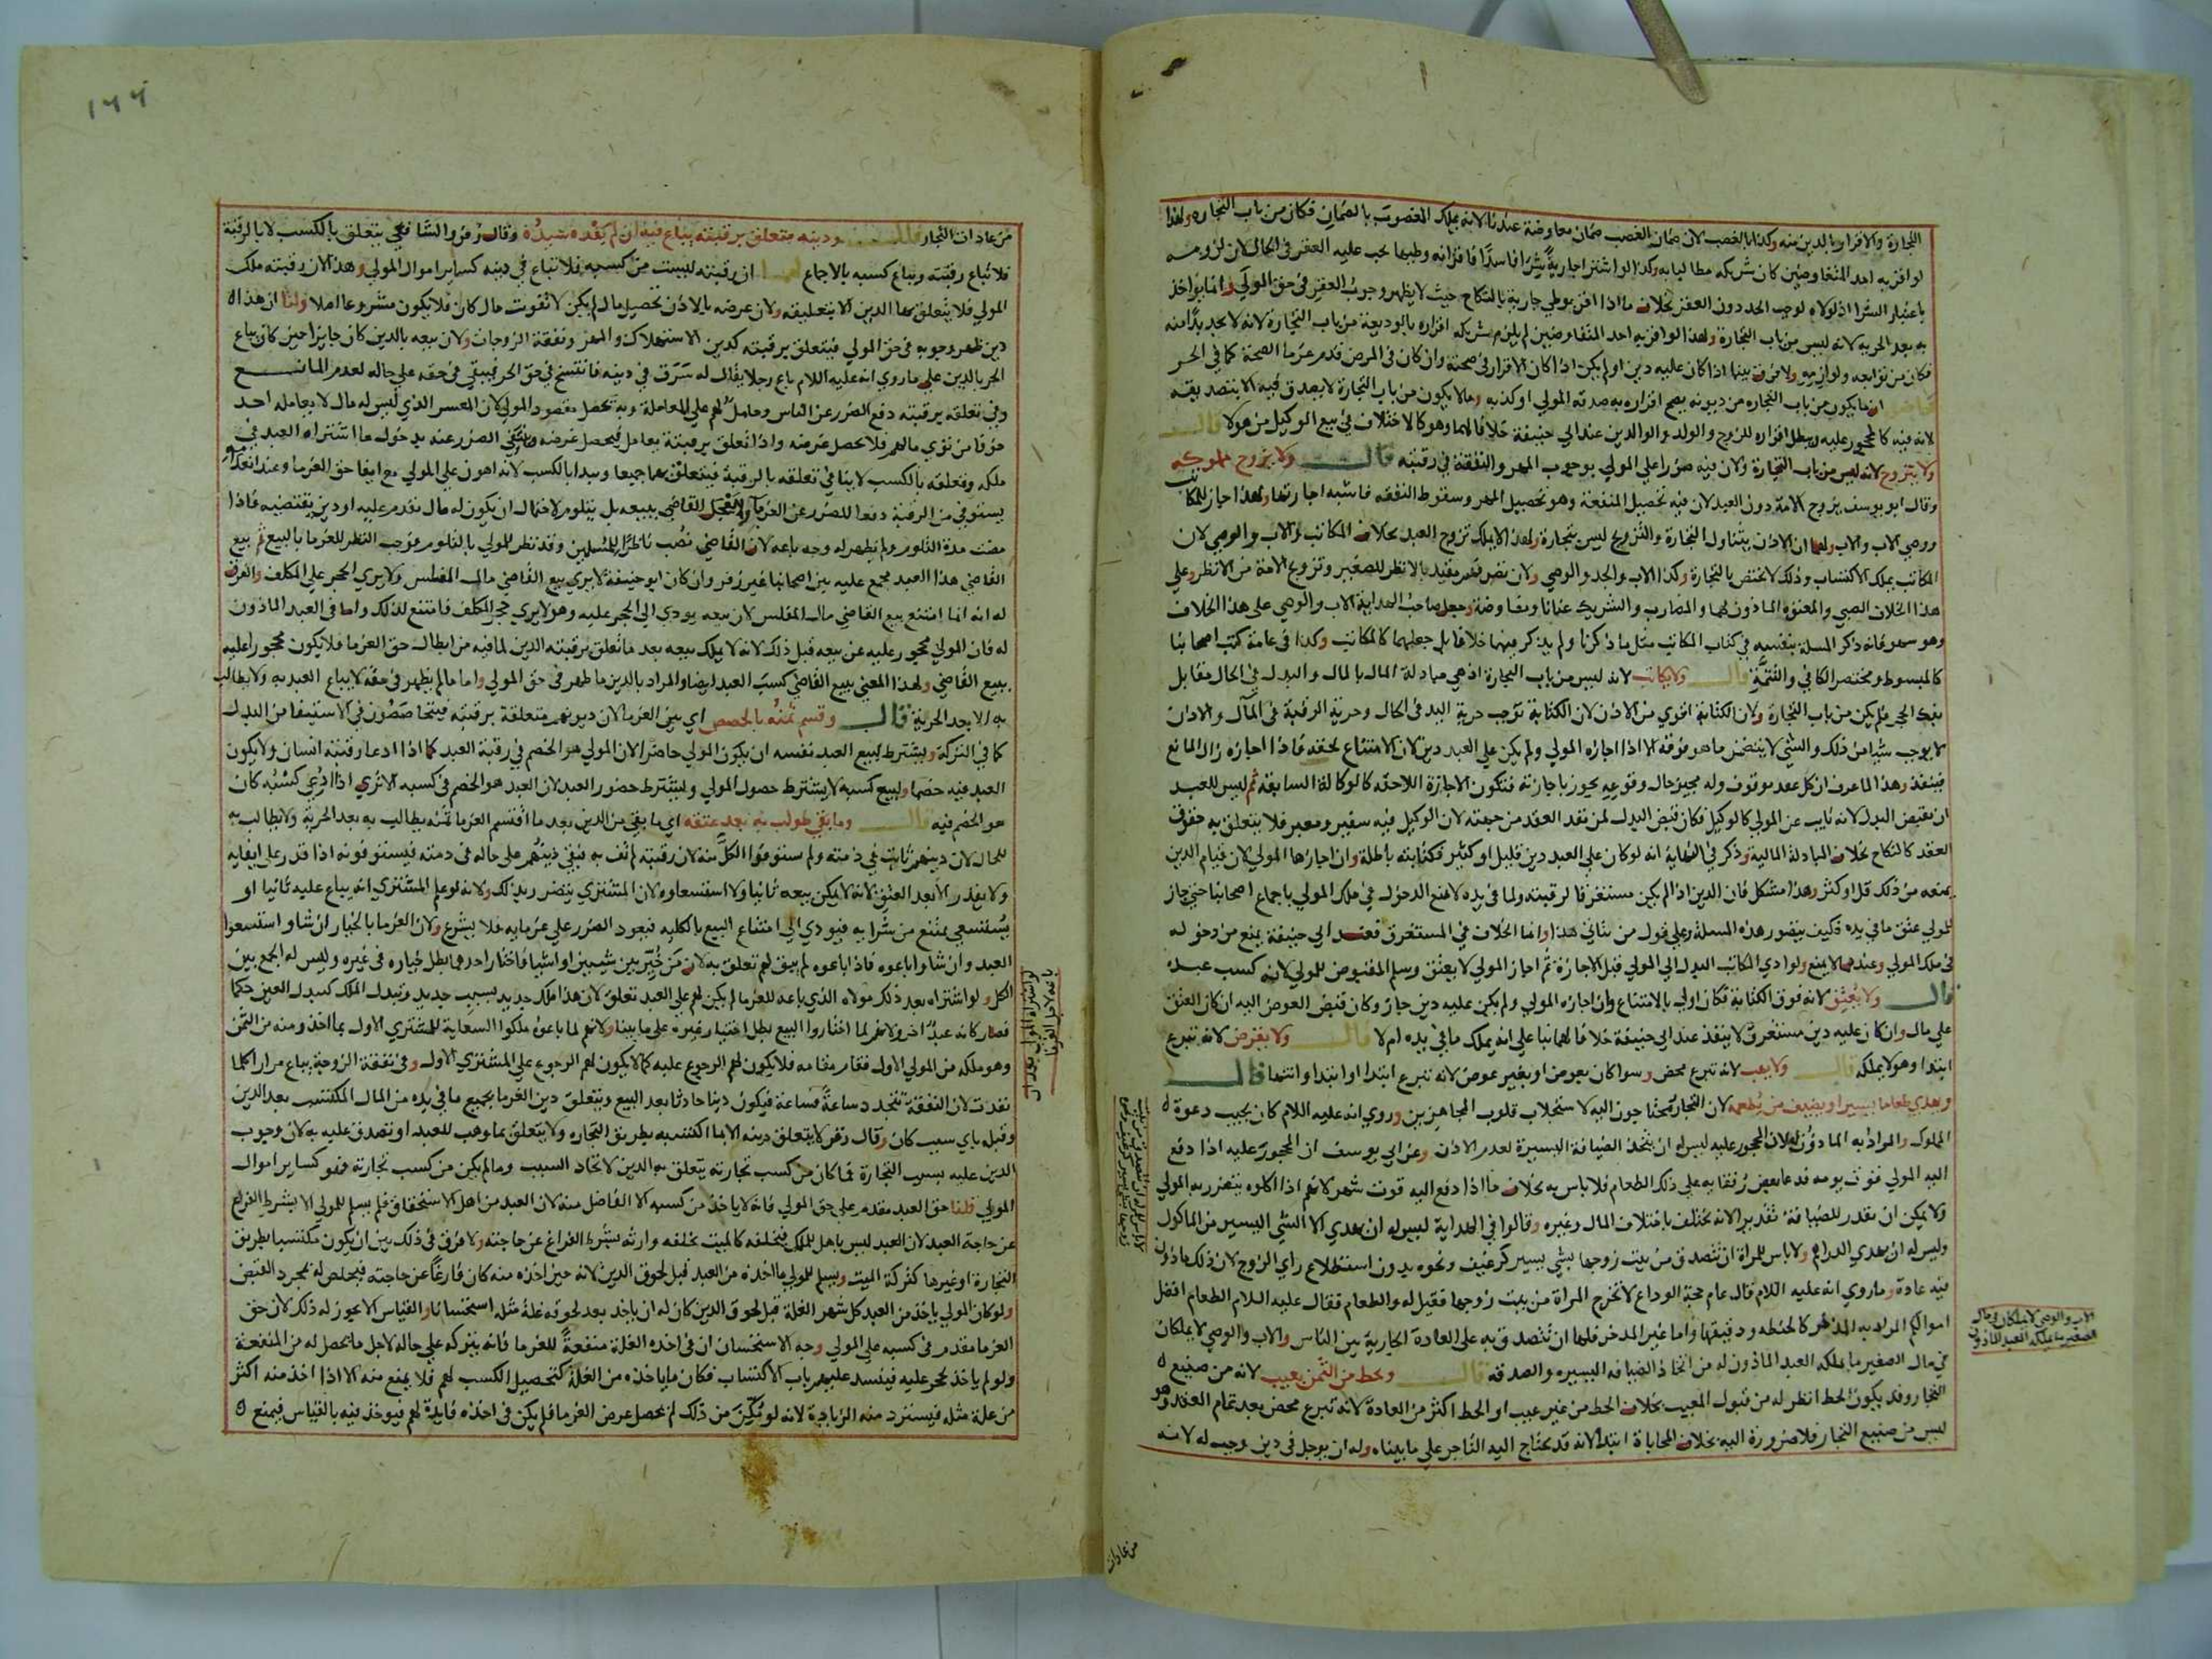 التجارة والاقرار بالدين منه وكذا بالغصب لان ضمان الغصب ضمان معاوضة عندنا لانه يملك المغصوب بالضمان فكان من باب التجاره ولهذا
لو اقر به احد المتفاوضين كان شريكه مطالبا به وكذا لو اشترا جارية شرا فاسدا فاقر انه وطيها يجب عليه العقر في الحال لان لزومه
باعتبار الشرا اذ لولاه لوجب الحد دون العقر بخلاف ما اذا اقر بوطي جارية بالنكاح حيث لا يظهر وجوب العقر في حق المولى وانما يواخذ
به بعد الحرية لانه ليس من باب التجارة ولهذا لو اقر به احد المتفاوضين لم يلزم شريكه اقراره بالوديعة من باب التجارة لانه لا يجد بدا منه
فكان من توابعه ولوازمه ولا فرق بينما اذا كان عليه دين او لم يكن اذا كان الاقرار في صحته وان كان في المرض قدم غرما الصحة كما في الحر
ان ما يكون من باب التجاره من ديونه يصح اقراره به صدقه المولى او كذبه وما لا يكون من باب التجارة لا يصدق فيه الا بتصديقه
لانه فيه كالمحجور عليه ويبطل اقراره للزوج والولد والوالدين عند ابي حنيفة خلافا لهما وهو كالاختلاف في بيع الوكيل من هولا قال
ولا يتزوج لانه ليس من باب التجارة ولان فيه ضررا على المولى بوجوب المهر والنفقة في رقبته قال ولا يزوج مملوكه
وقال ابو يوسف يزوج الامة دون العبد لان فيه تحصيل المنفعة وهو تحصيل المهر وسقوط النفقه فاشبه اجارتها ولهذا جاز للمكاتب
ووصي الاب والاب ولهما ان الاذن يتناول التجارة والتزويج ليس بتجارة ولهذا لا يملك تزوج العبد بخلاف المكاتب والاب والوصي لان
المكاتب يملك الاكتساب وذلك لا يختص بالتجارة وكذا الاب والجد والوصي ولان تصرفهم مقيد بالانظر للصغير وتزويج الامة من الانظر وعلى
هذا الخلاف الصبي والمعتوه الماذون لهما والمضارب والشريك عنانا ومفاوضة وجعل صاحب الهداية الاب والوصي على هذا الخلاف
وهو سهو فانه ذكر المسلة بنفسه في كتاب المكاتب مثل ما ذكرنا ولم يذكر فيهما خلافا بل جعلهما كالمكاتب وكذا في عامة كتب اصحابنا
كالمبسوط ومختصر الكافي والتتمة قال ولا يكاتب لانه ليس من باب التجارة اذ هي مبادلة المال بالمال والبدل في الحال مقابل
بفك الحجر فلم يكن من باب التجارة ولان الكتابة اقوى من الاذن لان الكتابة توجب حرية اليد في الحال وحرية الرقبة في المآل والاذن
لا يوجب شيا من ذلك والشي لا يتضمن ما هو فوقه الا اذا اجازه المولى ولم يكن على العبد دين لان الامتناع لحقه فاذا اجازه زال المانع
فينفذ وهذا لما عرف ان كل عقد موقوف وله مجيز حال وقوعه يجوز باجازته فتكون الاجازة اللاحقه كالوكالة السابقه ثم ليس للعبد
ان يقبض البدل لانه نايب عن المولى كالوكيل فكان قبض البدل لمن نفذ العقد من جهته لان الوكيل فيه سفير ومعبر فلا يتعلق به حقوق
العقد كالنكاح بخلاف المبادلة المالية وذكر في النهاية انه لو كان على العبد دين قليل او كثير فكتابته باطلة وان اجازها المولى لان قيام الدين
يمنعه من ذلك قل او كثر وهذا مشكل فان الدين اذا لم يكن مستغرقا لرقبته ولما في يده لا يمنع الدخول في ملك المولى باجماع اصحابنا حتى جاز
للمولى عتق ما في يده فكيف يتصور هذه المسلة وعلى قول من يتاتي هذا وانما الخلاف في المستغرق فعند ابي حنيفة يمنع من دخوله
في ملك المولى وعندهما لا يمنع ولو ادى المكاتب البدل الى المولى قبل الاجازة ثم اجاز المولى لا يعتق وسلم المقبوض للمولى لانه كسب عبده
قال ولا يعتق لانه فوق الكتابة فكان اولى بالامتناع وان اجازه المولى ولم يكن عليه دين جاز وكان قبض العوض اليه ان كان العتق
على مال وان كان عليه دين مستغرق لا ينفذ عند ابي حنيفة خلافا لهما بنا على انه يملك ما في يده ام لا قال ولا يقرض لانه تبرع
ابتدا وهو لا يملكه قال ولا يهب لانه تبرع محض وسوا كان بعوض او بغير عوض لانه تبرع ابتدا او ابتدا وانتها قال
ويهدي طعاما يسيرا ويضيف من يطعمه لان التجار يحتاجون اليه لاستجلاب قلوب المجاهزين وروي انه عليه اللام كان يجيب دعوة
المملوك والمراد به الماذون له لان المحجور عليه ليس له ان يتخذ الضيافة اليسيرة لعدم الاذن وعن ابي يوسف ان المحجور عليه اذا دفع
اليه المولى قوت يومه فدعا بعض رفقايه على ذلك الطعام فلا باس به بخلاف ما اذا دفع اليه قوت شهر لانهم اذا اكلوه يتضرر به المولى
ولا يمكن ان يقدر للضيافة تقدير لانه يختلف باختلاف المال وغيره وقالوا في الهداية ليس له ان يهدي الا الشي اليسير من الماكول
وليس له ان يهدي الدراهم ولا باس للمراة ان تتصدق من بيت زوجها بشي يسير كرغيف ونحوه بدون استطلاع راي الزوج لان ذلك ماذون
فيه عادة وما روي انه عليه اللام قال عام حجة الوداع لا تخرج المراة من بيت زوجها فقيل له والطعام فقال عليه السلام الطعام افضل
اموالكم المراد به المدخر كالحنطه ودقيقها واما غير المدخر فلها ان تتصدق به على العادة الجارية بين الناس والاب والوصي لا يملكان
في مال الصغير ما يملكه العبد الماذون له من اتخاذ الضيافه اليسيره والصدقه قال ويحط من الثمن بعيب لانه من صنيع
التجار وقد يكون الحط انظر له من قبول المعيب بخلاف الحط من غير عيب او الحط اكثر من العادة لانه تبرع محض بعد تمام العقد وهو
ليس من صنيع التجار فلا ضرورة اليه بخلاف المحاباة ابتدا لانه قد يحتاج اليه التاجر على ما بيناه وله ان يوجل في دين وجب له لانه
الاب والوصي لا يملكان في مال
الصغير ما يملكه العبد الماذون
من عادات
١٦٦
من عادات التجار قال ودينه متعلق برقبته يباع فيه ان لم يفده سيده وقال زفر والشافعي يتعلق بالكسب لا بالرقبة
فلا تباع رقبته ويباع كسبه بالاجماع لهما ان رقبته ليست من كسبه فلا تباع في دينه كساير اموال المولى وهذا لان رقبته ملك
المولى فلا يتعلق بها الدين الا بتعليقه ولان غرضه بالاذن تحصيل مال لم يكن لا تفويت مال كان فلا يكون مشروعا اصلا ولنا ان هذا
دين ظهر وجوبه في حق المولى فيتعلق برقبته كدين الاستهلاك والمهر ونفقة الزوجات ولان بيعه بالدين كان جايزا حين كان يباع
الحر بالدين على ما روي انه عليه اللام باع رجلا يقال له سرق في دينه فانتسخ في حق الحر فيبقى في حقه على حاله لعدم المانع
وفي تعلقه برقبته دفع الضرر عن الناس وحامل لهم على المعاملة وبه تحصل مقصود المولى لان المعسر الذي ليس له مال لا يعامله احد
خوفا من توى مالهم فلا يحصل غرضه واذا تعلق برقبته يعامل فيحصل غرضه وينتفي الضرر عنه بدخول ما اشتراه العبد في
ملكه وتعلقه بالكسب لا ينافي تعلقه بالرقبة فيتعلق بهما جميعا ويبدا بالكسب لانه اهون على المولى مع ايفا حق الغرما وعند انعدامه
يستوفي من الرقبة دفعا للضرر عن الغرما ولا يعجل القاضي ببيعه بل يتلوم لاحتمال ان يكون له مال يقدم عليه او دين يقتضيه فاذا
مضت مدة التلوم ولم يظهر له وجه باعه لان القاضي نصب ناظرا للمسلمين وقد نظر للمولى بالتلوم فوجب النظر للغرما بالبيع ثم بيع
القاضي هذا العبد مجمع عليه بين اصحابنا غير زفر وان كان ابو حنيفة لا يرى بيع القاضي مال المفلس ولا يرى الحجر على المكلف والفرق
له انه انما امتنع بيع القاضي مال المفلس لان بيعه يودي الى الحجر عليه وهو لا يرى حجر المكلف فامتنع لذلك واما في العبد الماذون
له فان المولى محجور عليه عن بيعه قبل ذلك لانه لا يملك بيعه بعد ما تعلق برقبته الدين لما فيه من ابطال حق الغرما فلا يكون محجورا عليه
ببيع القاضي ولهذا المعنى يبيع القاضي كسب العبد ايضا والمراد بالدين ما ظهر في حق المولى واما ما لم يظهر في حقه لا يباع العبد به ولا يطالب
به الا بعد الحرية قال وقسم ثمنه بالحصص اي بين الغرما لان ديونهم متعلقة برقبته فيتحاصصون في الاستيفا من البدل
كما في التركة ويشترط لبيع العبد نفسه ان يكون المولى حاضرا لان المولى هو الخصم في رقبة العبد كما اذا ادعا رقبته انسان ولا يكون
العبد فيه خصما ولبيع كسبه لا يشترط حضور المولى ويشترط حضور العبد لان العبد هو الخصم في كسبه الا ترى اذا ادعي كسبه كان
هو الخصم فيه قال وما بقي طولب به بعد عتقه اي ما بقي من الدين بعد ما اقتسم الغرما ثمنه يطالب به بعد الحرية ولا يطالب به
للحال لان دينهم ثابت في ذمته ولم يستوفوا الكل منه لان رقبته لم تف به فبقي دينهم على حاله في ذمته فيستوفونه اذا قدر على ايفايه
ولا يقدر الا بعد العتق لانه لا يمكن بيعه ثانيا ولا استسعاوه لان المشتري يتضرر بذلك ولانه لو علم المشتري انه يباع عليه ثانيا او
يستسعى يمتنع من شرايه فيودي الى امتناع البيع بالكليه فيعود الضرر على غرمايه فلا يشرع ولان الغرما بالخيار ان شاو استسعوا
العبد وان شاوا باعوه فاذا باعوه لم يبق لهم تعلق به لان من خير بين شيين او اشيا فاختار احدهما بطل خياره في غيره وليس له الجمع بين
الكل ولو اشتراه بعد ذلك مولاه الذي باعه للغرما لم يكن لهم على العبد تعلق لان هذا ملك جديد بسبب جديد وتبدل الملك كتبدل العين حكما
فصار كانه عبد اخر ولانهم لما اختاروا البيع بطل اختيار غيره على ما بينا ولانهم لما باعوه ملكوا السعاية للمشتري الاول بما اخذو منه من الثمن
وهو ملكه من المولى الاول فقام مقامه فلا يكون لهم الرجوع عليه كما لا يكون لهم الرجوع على المشتري الاول وفي نفقة الزوجة يباع مرارا كلما
نفدت لان النفقة تتجدد ساعة فساعة فيكون دينا حادثا بعد البيع ويتعلق دين الغرما بجميع ما في يده من المال المكتسب بعد الدين
وقبله باي سبب كان وقال زفر لا يتعلق دينه الا بما اكتسبه بطريق التجاره ولا يتعلق بما وهب للعبد او تصدق عليه به لان وجوب
الدين عليه بسبب التجارة فما كان من كسب تجارته يتعلق به الدين لاتحاد السبب وما لم يكن من كسب تجارته فهو كساير اموال
المولى قلنا حق العبد مقدم على حق المولى فانه لا ياخذ من كسبه الا الفاضل منه لان العبد من اهل الاستحقاق فلم يسلم للمولى الا بشرط الفراغ
عن حاجة العبد لان العبد ليس باهل للملك فيخلفه كالميت يخلفه وارثه بشرط الفراغ عن حاجته ولا فرق في ذلك بين ان يكون مكتسبا بطريق
التجارة او غيرها كتركة الميت ويسلم للمولى ما اخذه من العبد قبل لحوق الدين لانه حين اخذه منه كان فارغا عن حاجته فيخلص له بمجرد القبض
ولو كان المولى ياخذ من العبد كل شهر الغلة قبل لحوق الدين كان له ان ياخذ بعد لحوقه غلة مثله استحسانا والقياس لا يجوز له ذلك لان حق
الغرما مقدم في كسبه على المولى وجه الاستحسان ان في اخذه الغلة منفعة للغرما فانه يتركه على حاله لاجل ما يحصل له من المنفعة
ولو لم ياخذ لحجر عليه فينسد عليهم باب الاكتساب فكان ما ياخذه من الغلة كتحصيل الكسب لهم فلا يمنع منه الا اذا اخذ منه اكثر
من غلة مثله فيسترد منه الزيادة لانه لو مكن من ذلك لم يحصل غرض الغرما فلم يكن في اخذه فايدة لهم فيوخذ فيه بالقياس فيمنع